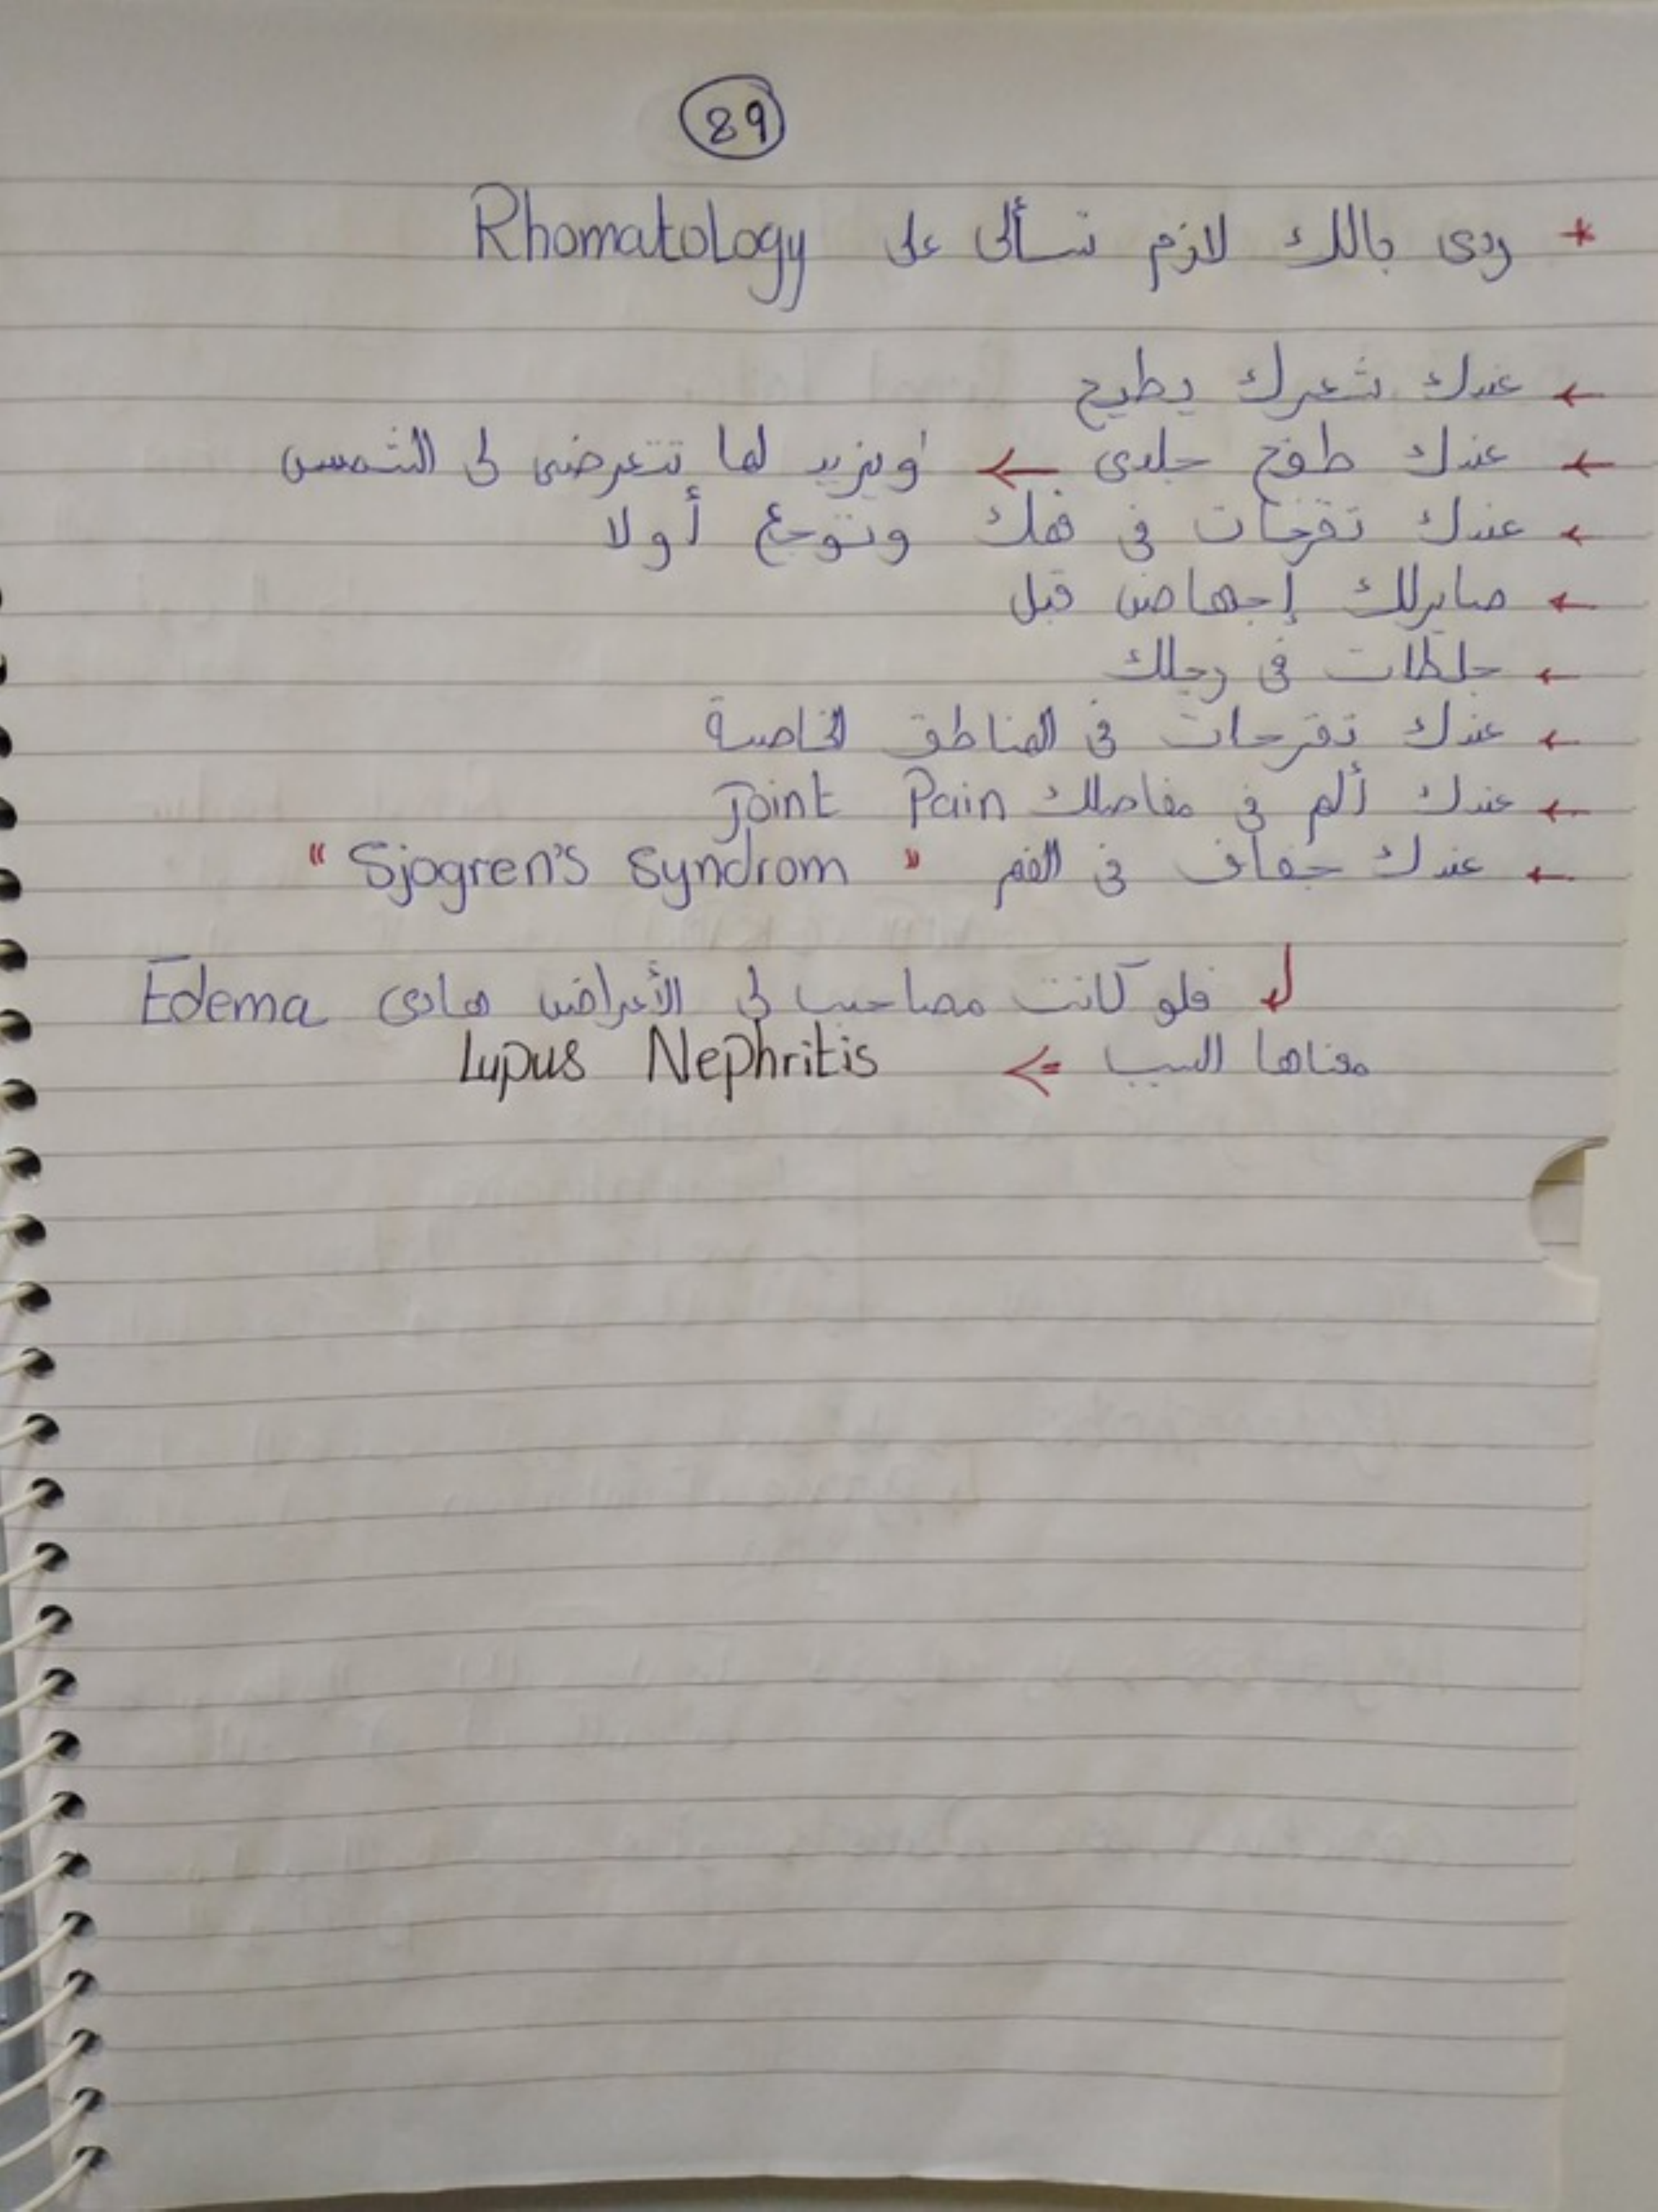 89
* ردى بالك لازم تسألى على Rhomatology
← عندك شعرك يطيح
← عندك طفح جلدى ← ويزيد لما تتعرضى لى الشمس
← عندك تقرحات فى فمك وتوجع أولا
← صايرلك إجهاض قبل
← جلطات فى رجلك
← عندك تقرحات فى المناطق الخاصة
← عندك ألم فى مفاصلك Joint Pain
← عندك جفاف فى الفم " Sjogren's Syndrom "
فلو كانت مصاحب لى الأعراض هادى Edema
معناها السبب => Lupus Nephritis